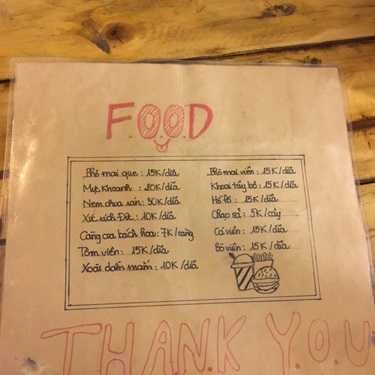 FOOD
Phô mai que : 15K/dĩa
Mực Khoanh : 20K/dĩa
Nem chua rán : 30K/dĩa
Xúc xích Đức : 10K/dĩa
Càng cua bách hoa : 7K/càng
Tôm viên : 15K/dĩa
Xoài dầm mắm : 10K/dĩa
Phô mai viên : 15K/dĩa
Khoai tây bò : 15K/dĩa
Hồ lô : 15K/dĩa
Chạo sả : 5K/cây
Cá viên : 15K/dĩa
Bò viên : 15K/dĩa
THANK YOU